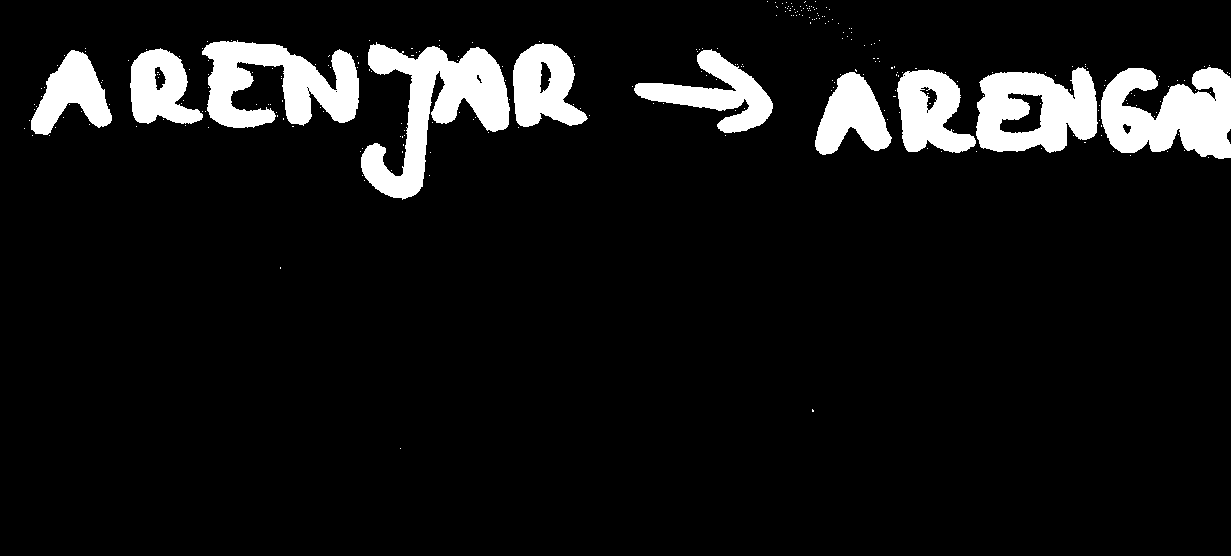 ARENJAR → ARENGAR